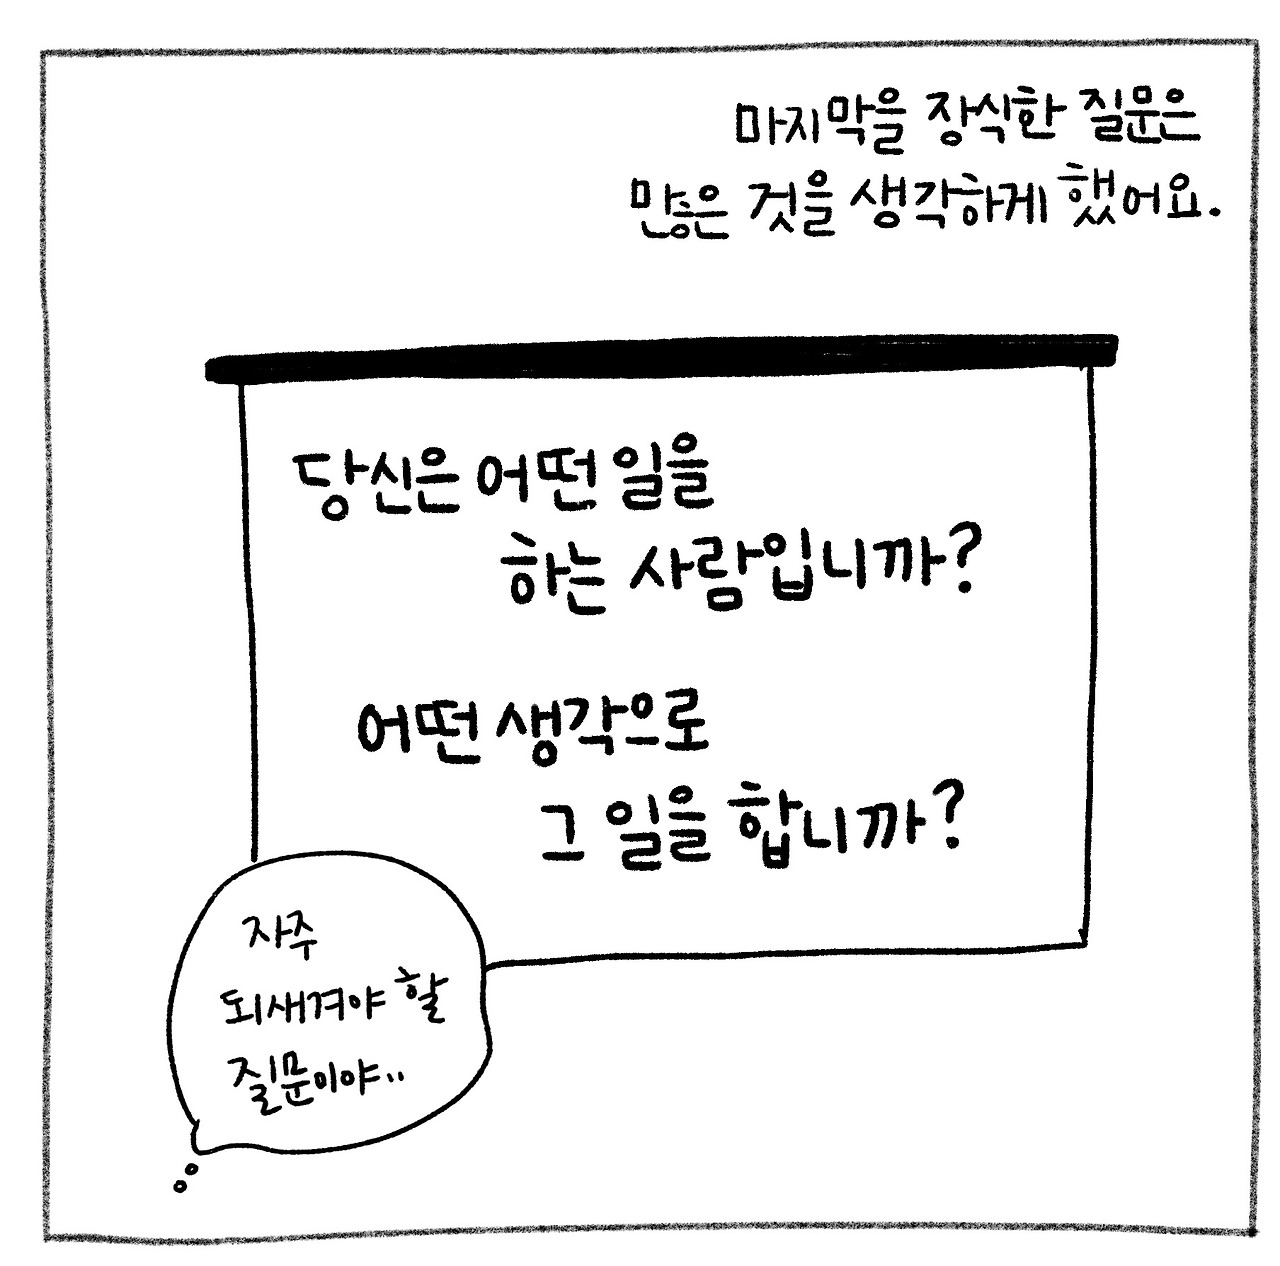 마지막을 장식한 질문은
많은 것을 생각하게 했어요.
당신은 어떤 일을
하는 사람입니까?
어떤 생각으로
그 일을 합니까?
자주
되새겨야 할
질문이야..